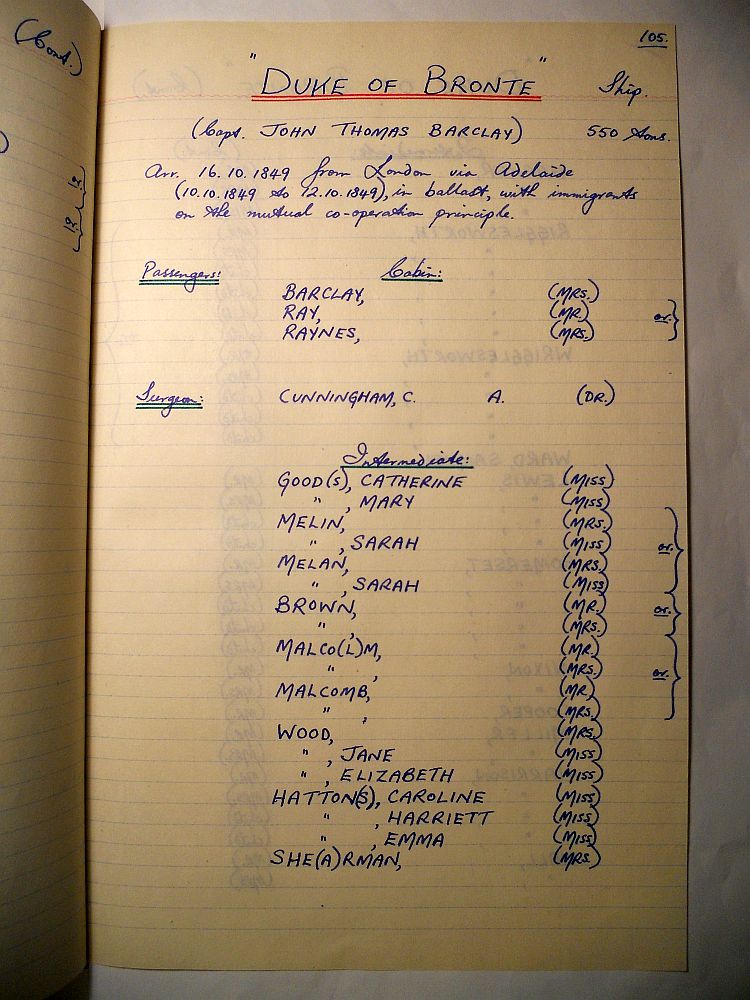 (Cont.)
105.
"DUKE OF BRONTE" Ship.
(Capt. JOHN THOMAS BARCLAY) 550 tons.
Arr. 16.10.1849 from London via Adelaide
(10.10.1849 to 12.10.1849), in ballast, with immigrants
on the mutual co-operation principle.
Passengers: Cabin:
BARCLAY, (MRS.)
RAY, (MR.) or.
RAYNES, (MRS.)
Surgeon: CUNNINGHAM, C. A. (DR.)
Intermediate:
GOOD(S), CATHERINE (MISS)
" , MARY (MISS)
MELIN, (MRS.)
" , SARAH (MISS) or.
MELAN, (MRS.)
" , SARAH (MISS)
BROWN, (MR.) or.
" , (MRS.)
MALCO(L)M, (MR.)
" , (MRS.) or.
MALCOMB, (MR.)
" , (MRS.)
WOOD, (MRS.)
" , JANE (MISS)
" , ELIZABETH (MISS)
HATTON(S), CAROLINE (MISS)
" , HARRIETT (MISS)
" , EMMA (MISS)
SHE(A)RMAN, (MRS.)